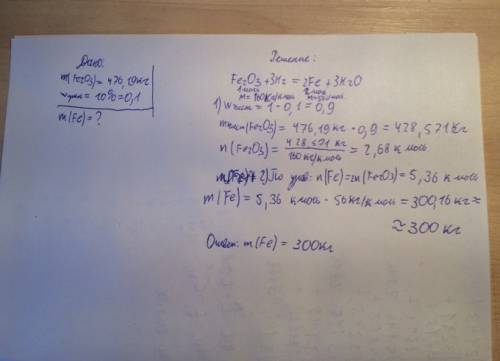 Дано:
m(Fe2O3) = 476,19 кг
wприм = 10% = 0,1
m(Fe) = ?
Решение:
Fe2O3 + 3H2 = 2Fe + 3H2O
1 моль 2 моль
M = 160 кг/кмоль
1) wчист = 1 - 0,1 = 0,9
mчист(Fe2O3) = 476,19 кг · 0,9 = 428,571 кг
n(Fe2O3) = 428,571 кг / 160 кг/кмоль = 2,68 кмоль
2) По урав: n(Fe) = 2n(Fe2O3) = 5,36 кмоль
m(Fe) = 5,36 кмоль · 56 кг/кмоль = 300,16 кг ≈
≈ 300 кг
Ответ: m(Fe) = 300 кг